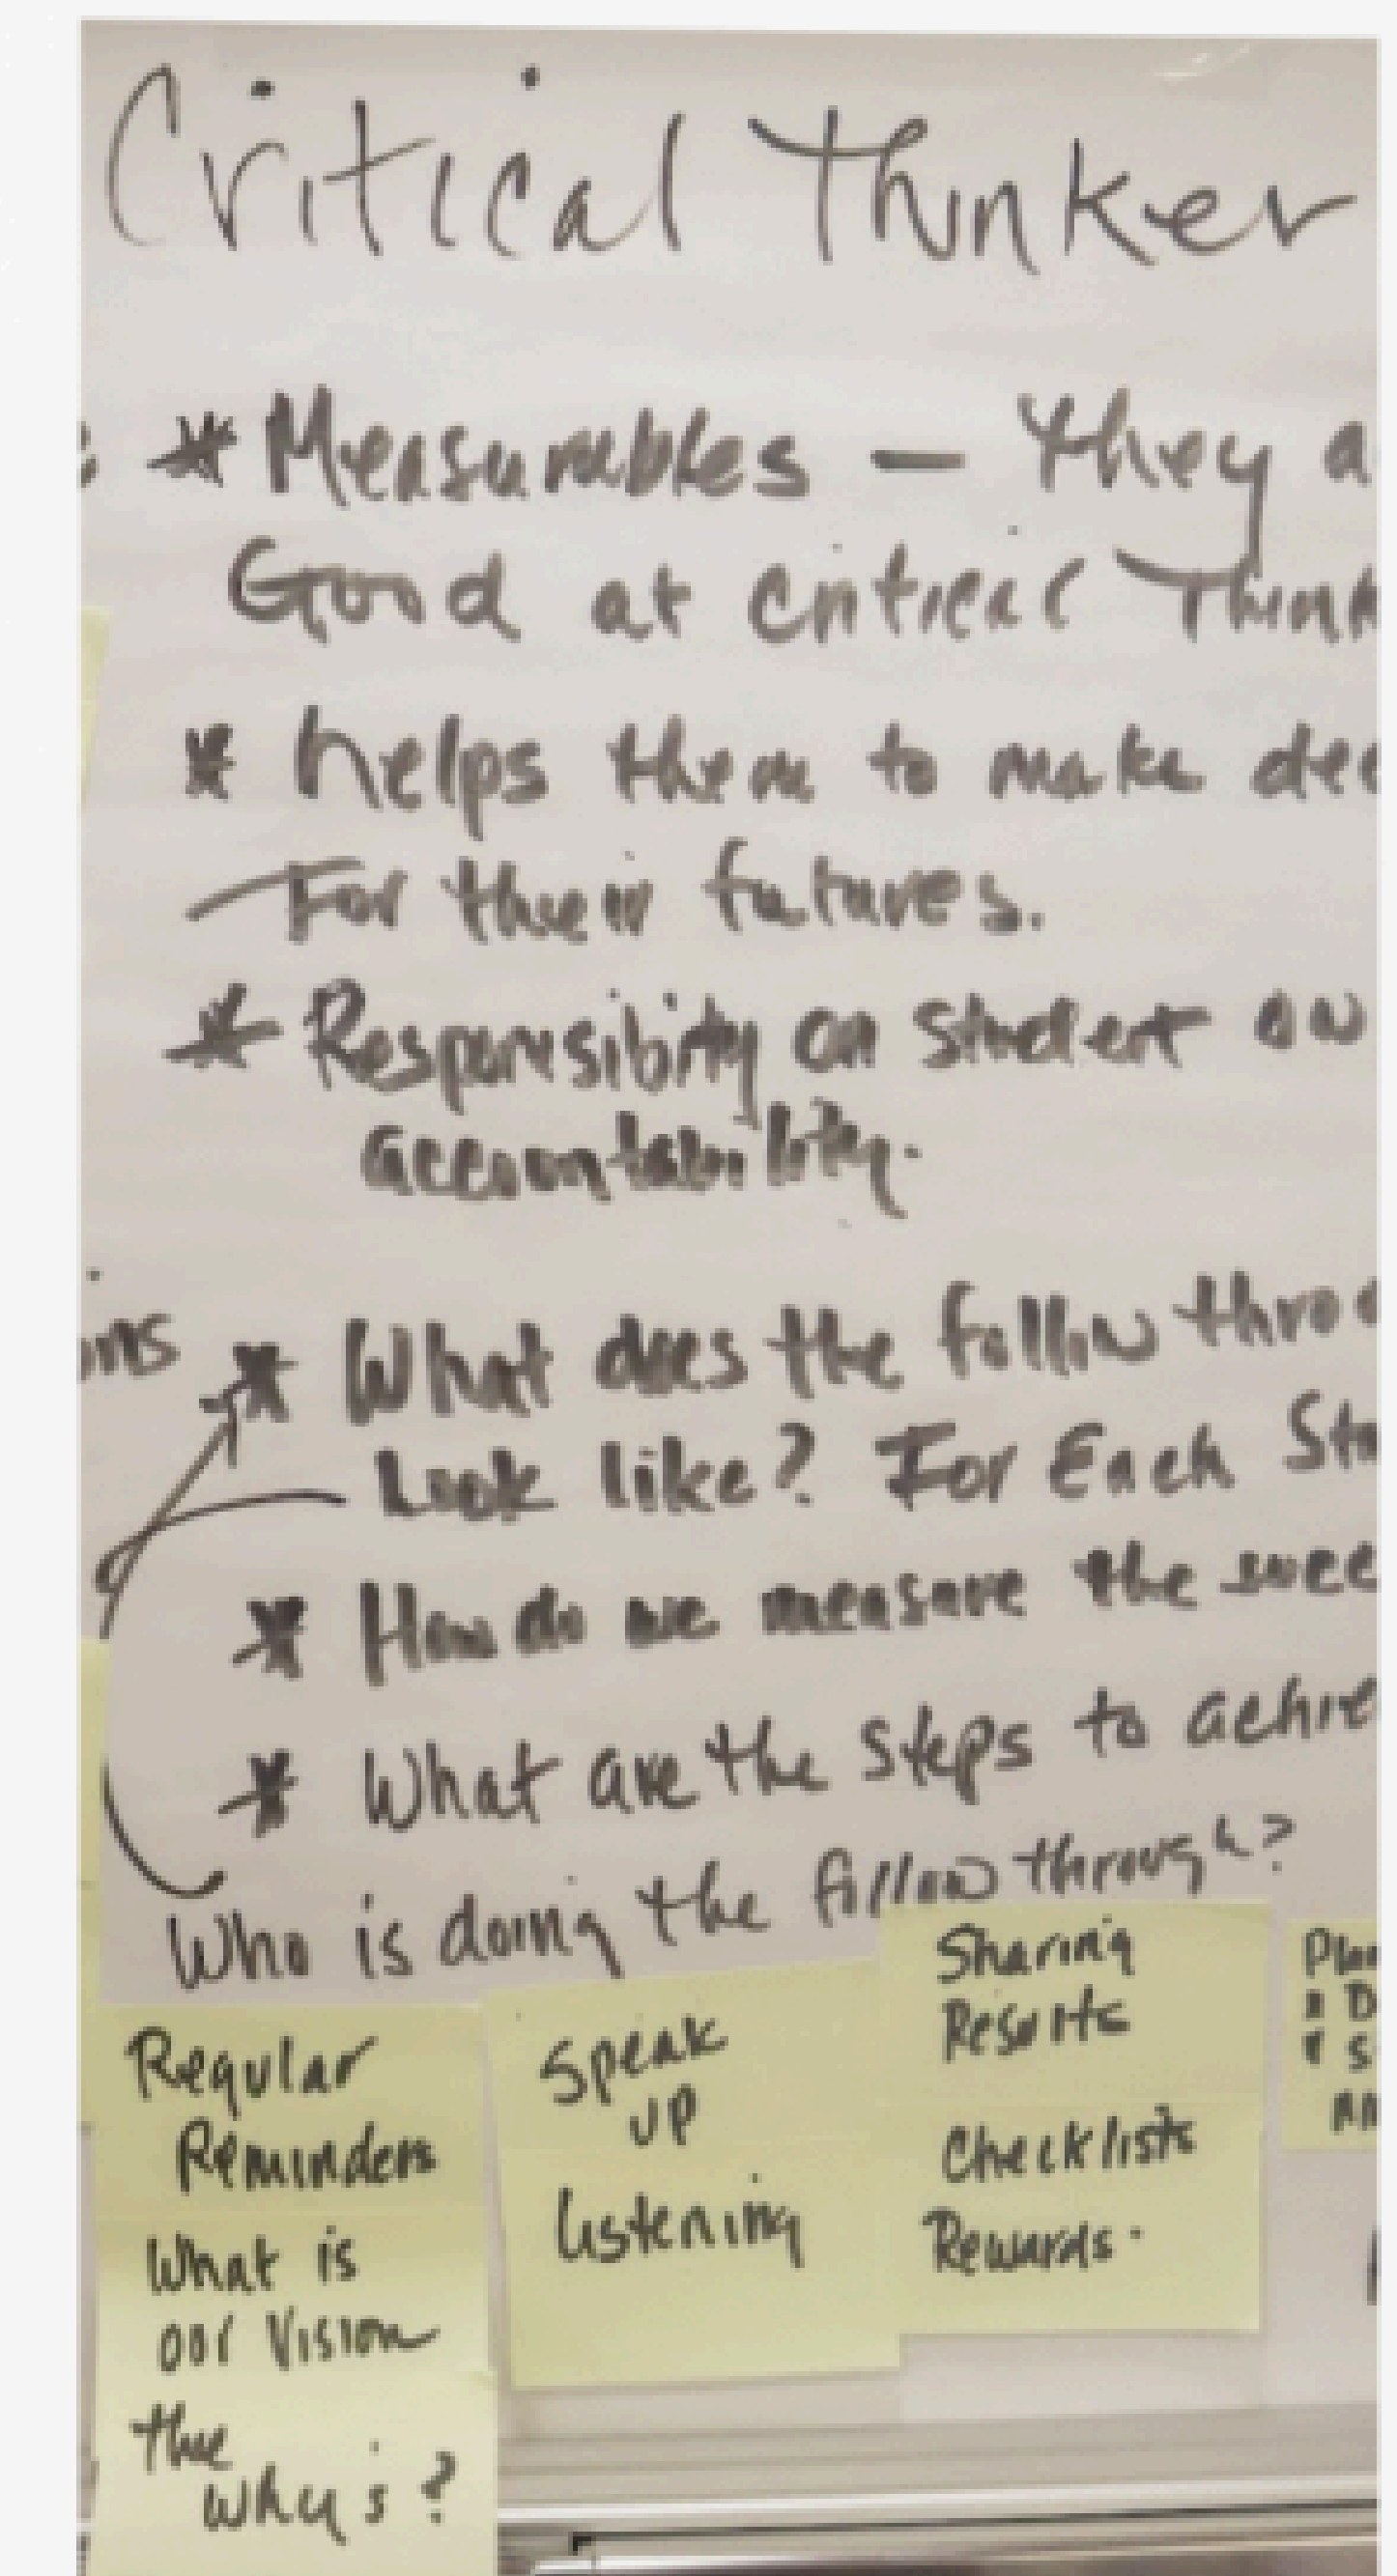 Critical Thinker
* Measurables — they a
Good at critical Think
* helps them to make dec
For their futures.
* Responsibility on student ow
accountability.
ons * What does the follow throu
Look like? For Each Stu
* How do we measure the succ
* What are the steps to achie
Who is doing the follow through?
Regular
Reminders
What is
our Vision
the
why's?
Speak
up
Listening
Sharing
Results
Checklists
Rewards.